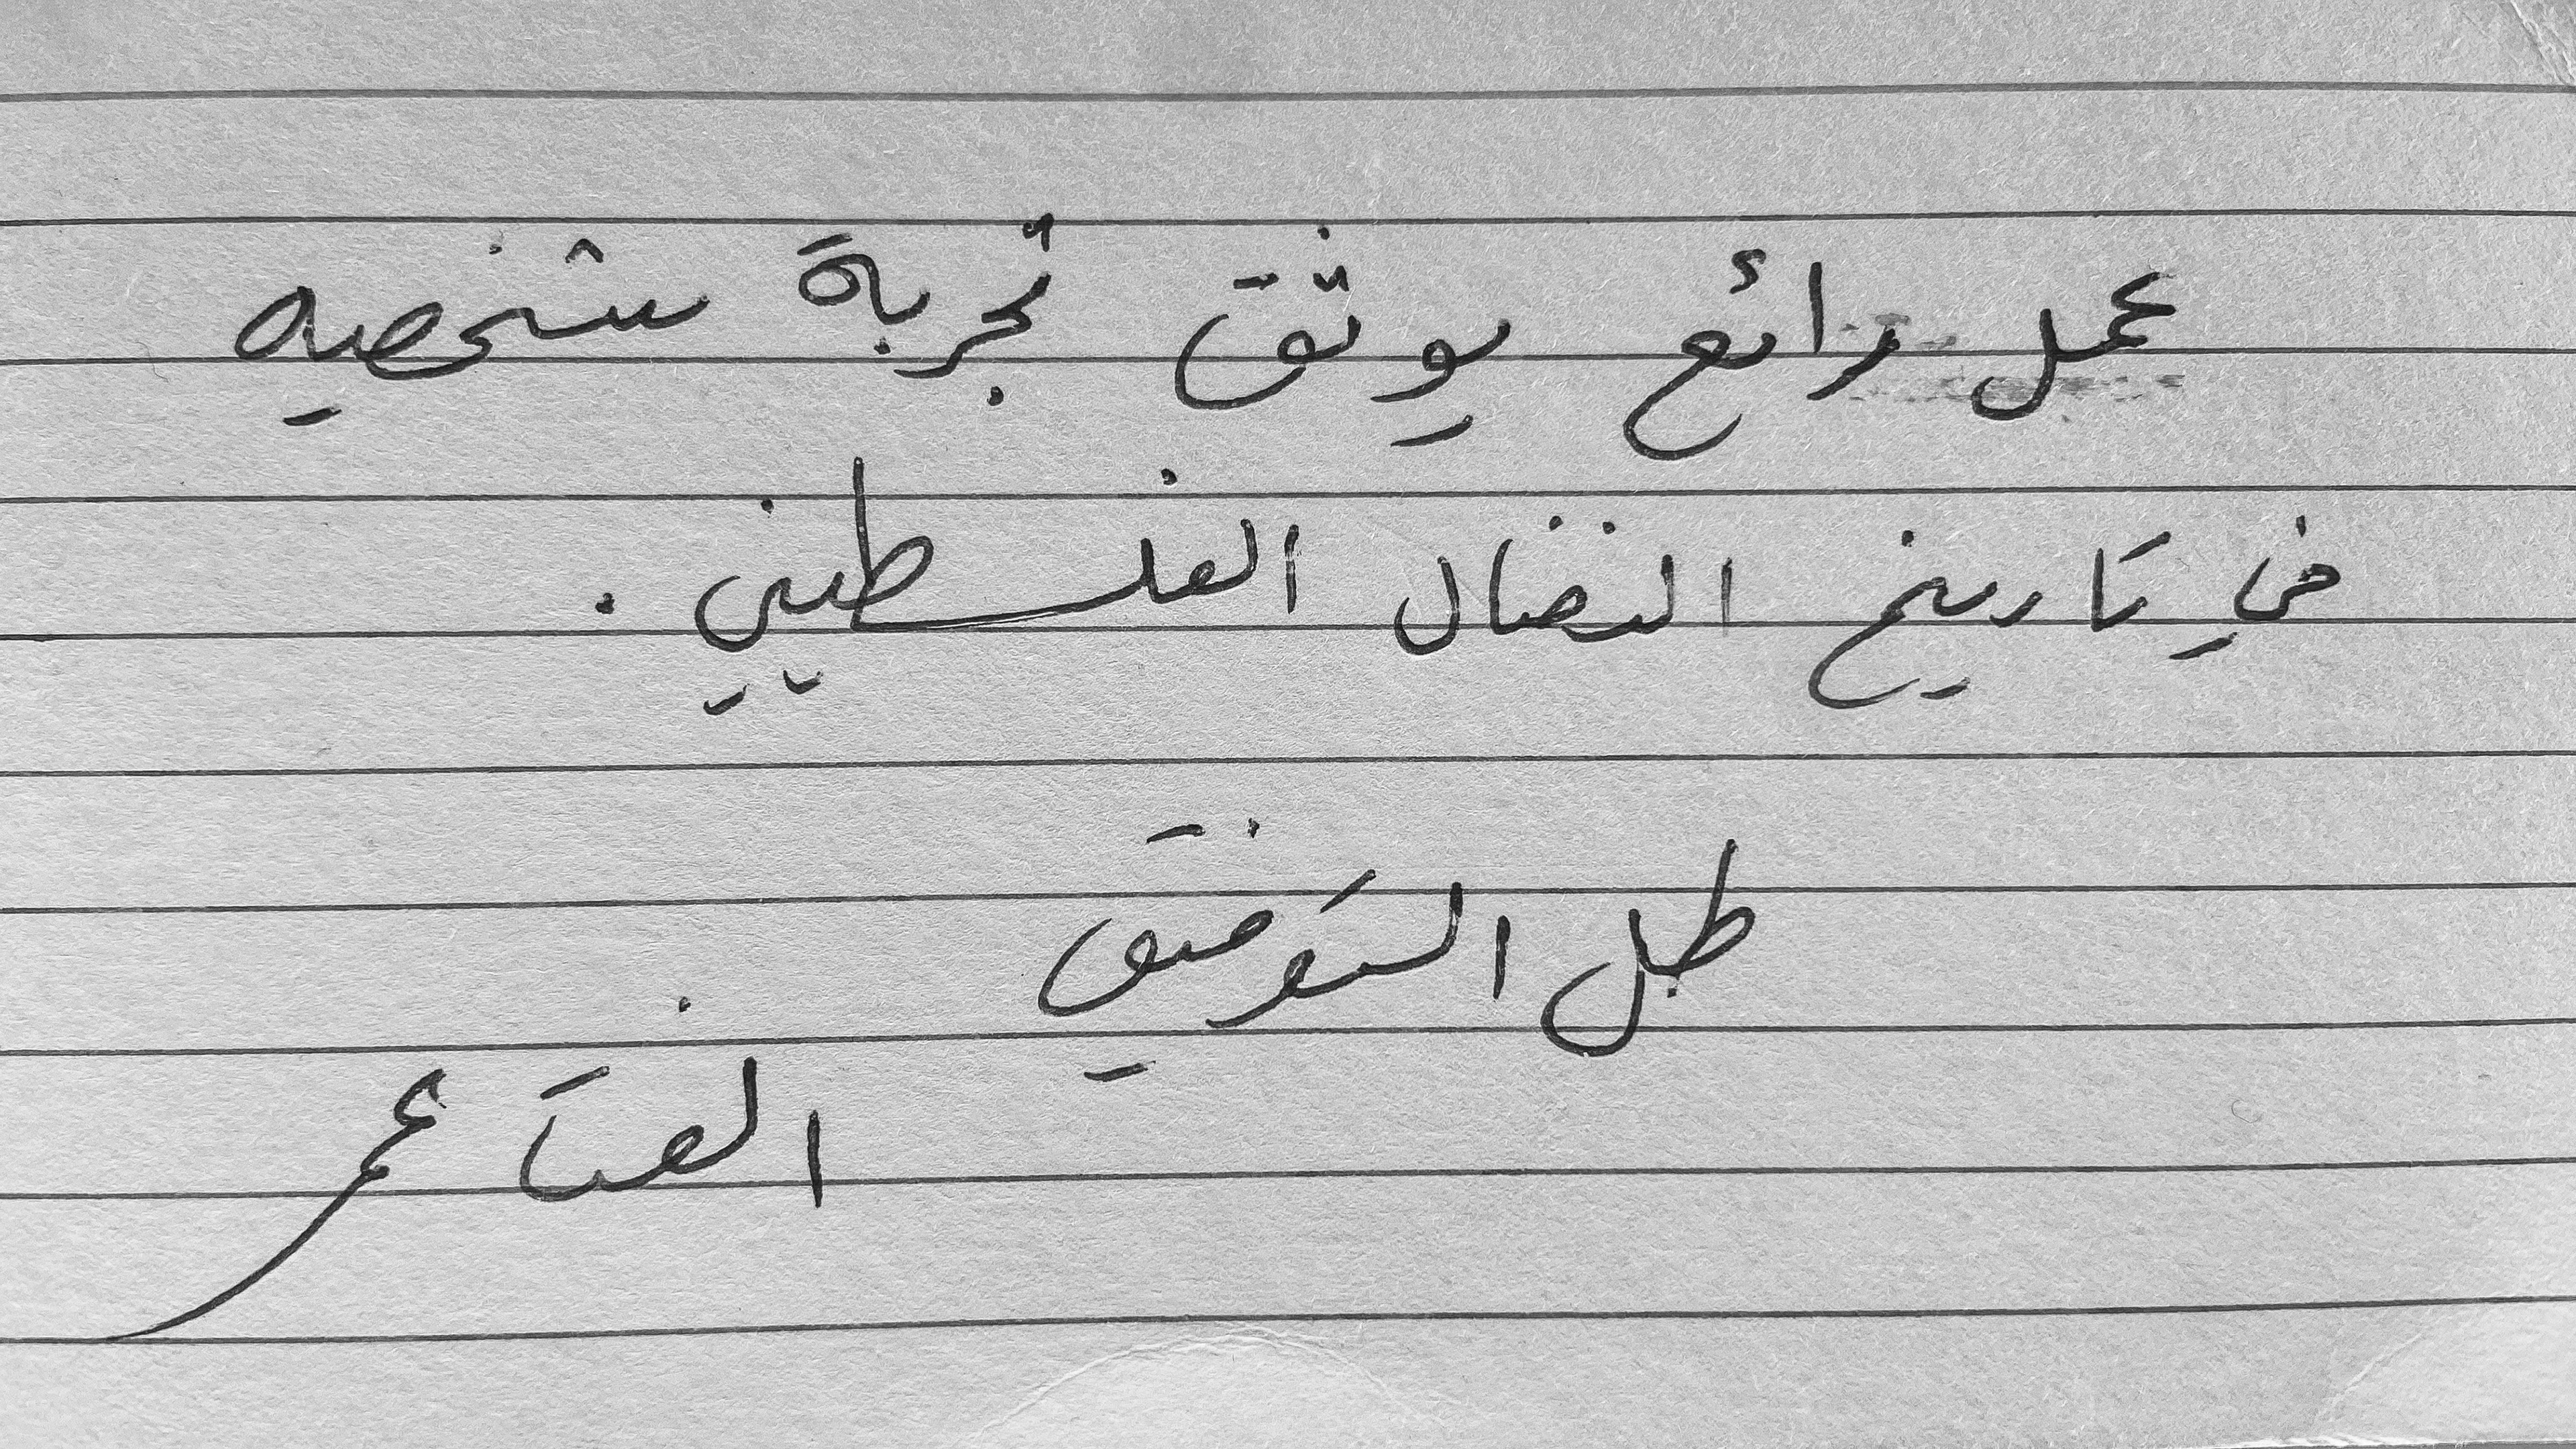 عمل رائع يوثق تجربة شخصيه
في تاريخ النضال الفلسطيني .
طبل التوفيق
الفتا عمر